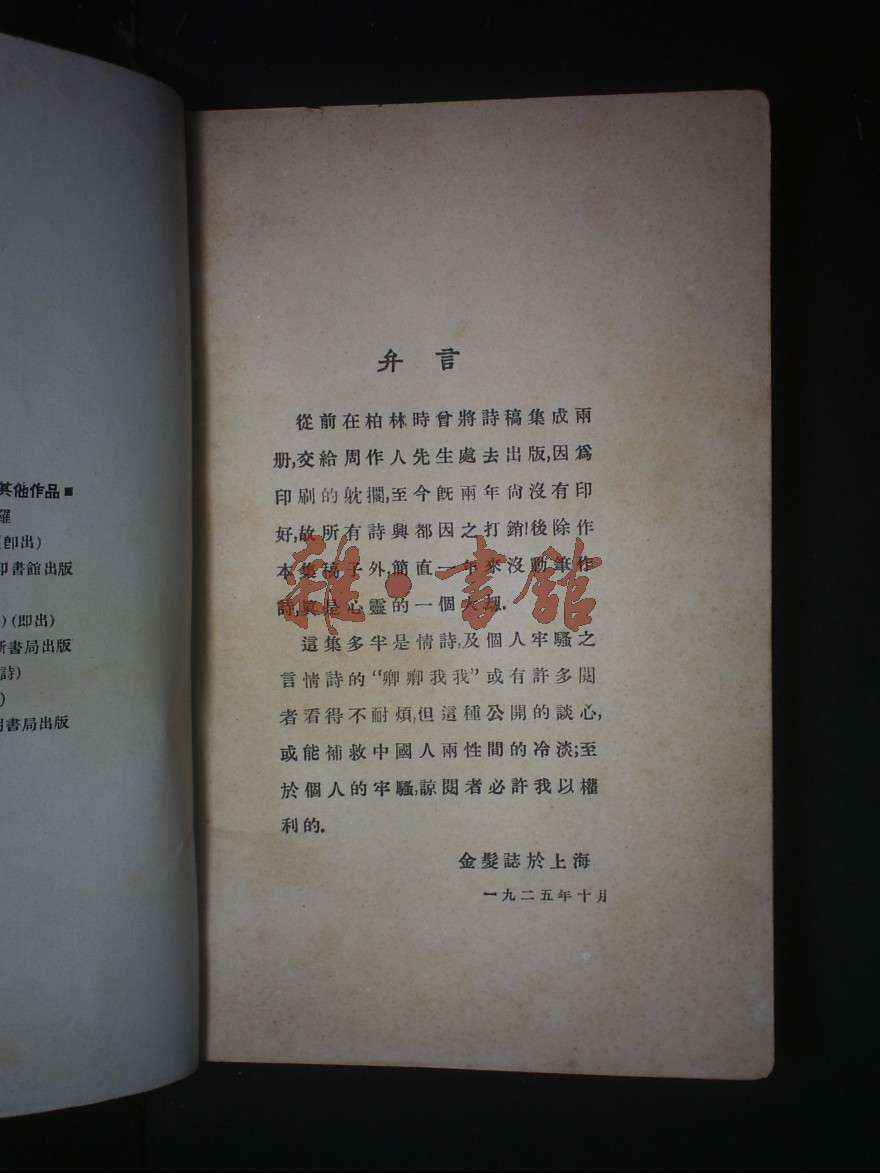 其他作品■
羅
(卽出)
印書館出版
)(即出)
新書局出版
詩)
)
明書局出版
弁言
從前在柏林時曾將詩稿集成兩
册,交給周作人先生處去出版,因爲
印刷的躭擱,至今旣兩年尙沒有印
好,故所有詩興都因之打銷!後除作
本集稿子外,簡直一年來沒動筆作
詩,眞是心靈的一個大刼.
這集多半是情詩,及個人牢騷之
言情詩的“卿卿我我”或有許多閱
者看得不耐煩,但這種公開的談心,
或能補救中國人兩性間的冷淡;至
於個人的牢騷,諒閱者必許我以權
利的.
金髮誌於上海
一九二五年十月
雜·書館